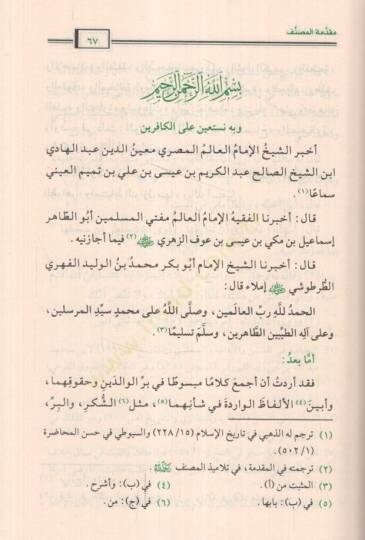 مقدّمة المصنّف
٦٧
بِسْمِ اللهِ الرَّحْمٰنِ الرَّحِيمِ
وبه نستعين على الكافرين
أخبر الشيخُ الإمامُ العالم المصري معينُ الدين عبد الهادي
ابن الشيخ الصالح عبد الكريم بن عيسى بن علي بن تميم العيني
سماعًا(١).
قال: أخبرنا الفقيهُ الإمامُ العالمُ مفتي المسلمين أبو الطّاهر
إسماعيل بن مكي بن عيسى بن عوف الزهري ﷺ(٢) فيما أجازنيه.
قال: أخبرنا الشيخ الإمام أبو بكر محمدُ بنُ الوليد الفهري
الطُّرطوشي ﷺ إملاءً قال:
الحمدُ للَّهِ ربِّ العالَمين، وصلَّى اللَّهُ على محمدٍ سيِّدِ المرسلين،
وعلى آله الطيِّبين الطَّاهرين، وسلَّم تسليمًا(٣).
أمَّا بعدُ:
فقد أردتُ أن أجمعَ كلامًا مبسوطًا في برِّ الوالدَينِ وحقوقِهما،
وأبينَ(٤) الألفاظَ الواردةَ في شأنِهما(٥)، مثل(٦) الشُّكرِ، والبِرِّ،
(١) ترجم له الذهبي في تاريخ الإسلام (١٥/ ٢٢٨) والسيوطي في حسن المحاضرة
(١/ ٥٠٢).
(٢) ترجمته في المقدمة، في تلاميذ المصنف
(٣) المثبت من (أ).
(٤) في (ب): وأشرح.
(٥) في (ب): بابها.
(٦) في (ج): من.